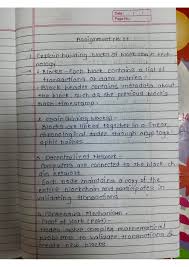 Date
Page No.
Assignment no. 01
1 Explain building blocks of blockchain tech
nology
1. Blocks - Each block contains a list of
transactions or data entries
Block header contains metadata about
the block, such as the previous block's
hash, timestamp
2. Chain (Linking blocks)
Blocks are linked together in a linear,
chronological order through cryptogr
aphic hashes
3. Decentralized Network -
Computers are connected to the block ch
ain network
Each node maintains a copy of the
entire blockchain and participates in
validating transactions
4. Consensus Mechanism -
Proof of Work (PoW) -
Nodes solve complex mathematical
problems to validate transactions &
create new blocks